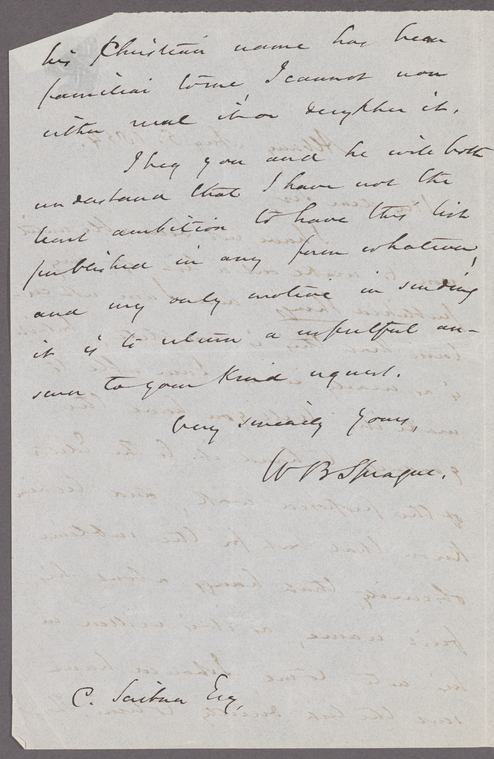 his Christian name has been
familiar to me, I cannot now
either read it or decypher it.
I beg you and he will both
understand that I have not the
least ambition to have this list
published in any form whatever,
and my only motive in sending
it is to return a respectful an-
swer to your kind request.
Very sincerely yours,
W B Sprague.
C. Scribner Esq.